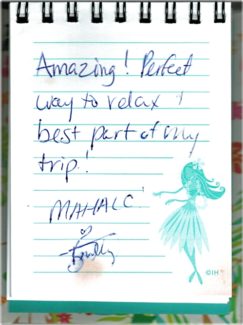 Amazing! Perfect
way to relax &
best part of my
trip!
MAHALO
©IH